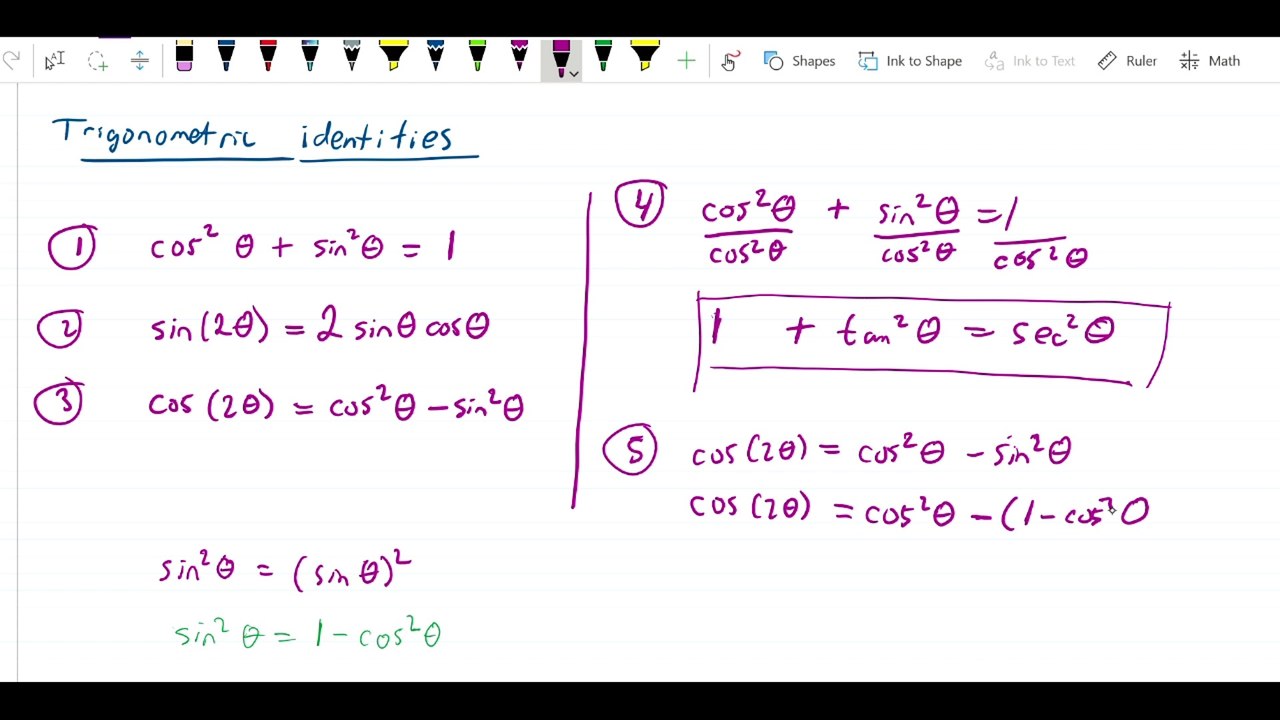 Shapes Ink to Shape Ink to Text Ruler Math
Trigonometric identities
① cos² θ + sin²θ = 1
② sin(2θ) = 2 sinθ cosθ
③ cos(2θ) = cos²θ – sin²θ
sin²θ = (sin θ)²
sin² θ = 1 – cos²θ
④ cos²θ/cos²θ + sin²θ/cos²θ = 1/cos²θ
1 + tan²θ = sec²θ
⑤ cos(2θ) = cos²θ – sin²θ
cos(2θ) = cos²θ – (1 – cos²O